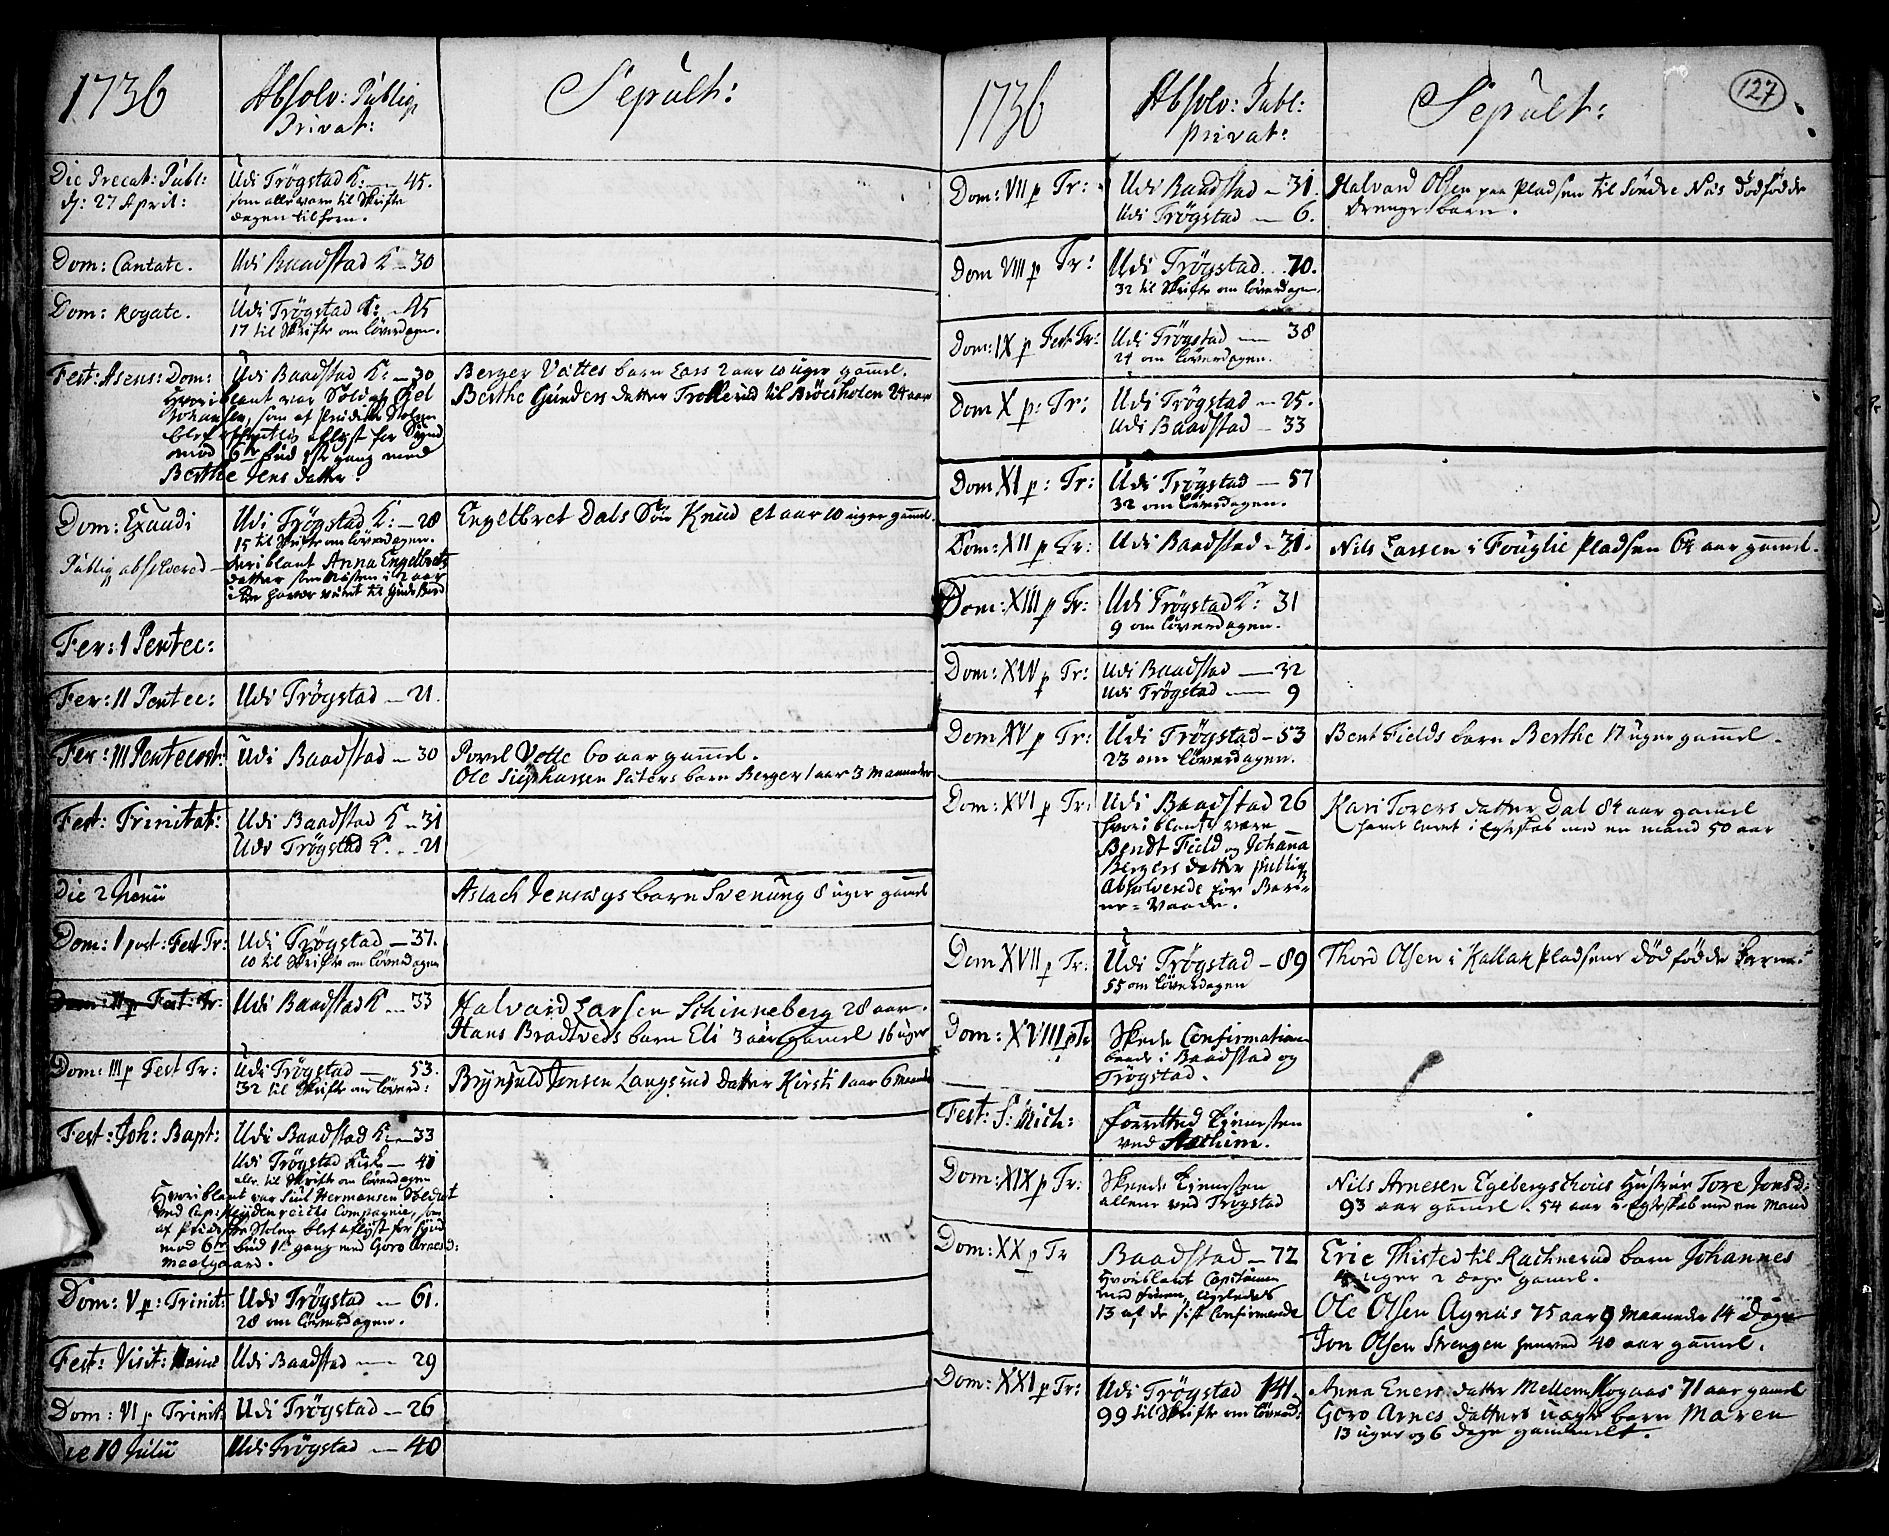 1736
Absolv: Publiq
Privat:
Sepult:
Die Precat: Publ:
d: 27 April:
Udi Trögstad K: — 45.
som alle vare til Skrifte
dagen til forn.
Dom: Cantate.
Udi Baadstad K — 30
Dom: Rogate.
Udi Trögstad K: — 45
17 til Skrifte om löverdagen.
Fest: Asens: Dom:
Udi Baadstad K: — 30
Hvoriblant var Soldat
Johansen, som af Prædike Stolen
blef offentlig aflyst for Synd
mod 6te bud 1ste gang med
Berthe Jens datter.
Berger Vattes barn Lars 2 aar 10 uger gamel.
Berthe Gunders datter Trollerud til 24 aar
Dom: Exaudi
Publiq absolvered
Udi Trögstad K: — 28
15 til Skrifte om löverdagen.
heriblant Anna Engelbrets
datter som næsten i 2 aar
ikke haver været til Guds Bord
Engelbret Dals Sön Knud et aar 10 uger gamel.
Fer: 1 Pentec:
Fer: 11 Pentec:
Udi Trögstad — 21.
Fer: III Pentecost:
Udi Baadstad — 30
Povel Vette 60 aar gamel.
Ole barn Berger 1 aar 3 Maaneder
Fest: Trinitat:
Udi Baadstad K — 31
Udi Trögstad K. — 21
Die 2 Junii
Aslach barn Svenung 8 uger gamel
Dom: 1 post: Fest Tr:
Udi Trögstad — 37.
10 til Skrifte om löverdagen
Dom: II p Fest: Tr:
Udi Baadstad K — 33
Halvard Larsen Schinneberg 28 aar.
Hans Bradtveds barn Eli 3 aar gamel 16 uger
Dom: III p Fest Tr:
Udi Trögstad — 53.
32 til Skrifte om löverd:
Brynjuld Jensen Langsrud datter Kirsti 1 aar 6 Maaneder
Fest: Joh: Bapt:
Udi Baadstad K: — 33
Udi Trögstad Kirke — 41
alle til Skrifte om löverdagen
Hvoriblant var Hermansen Soldat
ved Capt: Compagnie, som
af Prædike Stolen blef aflyst for synd
mod 6te bud 1te gang med Goro Arnesd:
Moelgaard.
Dom: V p: Trinit:
Udi Trögstad — 61.
28 om löverdagen.
Fest: Visit: Mariæ
Udi Baadstad — 29
Dom: VI p Trinit:
Udi Trögstad — 26
Die 10 Julii
Udi Trögstad — 40
1736
Absolv: Publ:
privat:
Sepult:
127
Dom: VII p Tr:
Udi Baadstad — 31.
Udi Trögstad — 6.
Halvard Olsen paa Pladsen til Söndre Næs dödfödde
drengebarn.
Dom VIII p Tr:
Udi Trögstad . . 70.
32 til Skrifte om löverdagen
Dom: IX p Fest Tr:
Udi Trögstad — 38
24 om löverdagen.
Dom X p: Tr:
Udi Trögstad — 25.
Udi Baadstad — 33
Dom XI p: Tr:
Udi Trögstad — 57
32 om löverdagen.
Dom: XII p Tr:
Udi Baadstad — 31.
Nils Larsen i Fouglie Pladsen 64 aar gamel.
Dom: XIII p Tr:
Udi Trögstad K: 31
9 om löverdagen.
Dom: XIV p Tr:
Udi Baadstad — 32
Udi Trögstad — 9
Dom XV p Tr:
Udi Trögstad — 53
23 om löverdagen.
Bent Fields barn Berthe 17 uger gamel.
Dom: XVI p Tr:
Udi Baadstad 26
hvoriblant vare
Bendt Field og Johana
Bergers datter publiq
Absolverede for
vaade.
Kari Torers datter Dal 84 aar gamel
hafde levet i Egteskab med en mand 50 aar
Dom XVII p Tr:
Udi Trögstad — 89
55 om löverdagen
Thord Olsen i Kallak Pladsens dödfödde barn
Dom: XVIII p Tr:
Skede Confirmation
baade i Baadstad og
Trögstad.
Fest: S: Mich:
forretted tjenesten
ved Aschim.
Dom: XIX p Tr:
Skeede tjenesten
allene ved Trögstad
Nils Arnesen Egebergs Hustru Tore Jonsd:
93 aar gamel. 54 aar i Egteskab med en Mand
Dom: XX p Tr
Baadstad — 72
Hvoriblant Capitainen
med
13 af de sist Confirmerede
Eric Thisted til Rachnerud barn Johannes
uger 2 dage gamel.
Ole Olsen Agnæs 75 aar 9 Maaneder 14 Dage
Jon Olsen Strengen henved 40 aar gamel.
Dom: XXI p Tr:
Udi Trögstad 141.
99 til Skrifte om löverd:
Anna Eners datter Mellem Kogaas 71 aar gamel
Goro Arnes datters uægte barn Maren
13 uger og 6 dage gammelt.